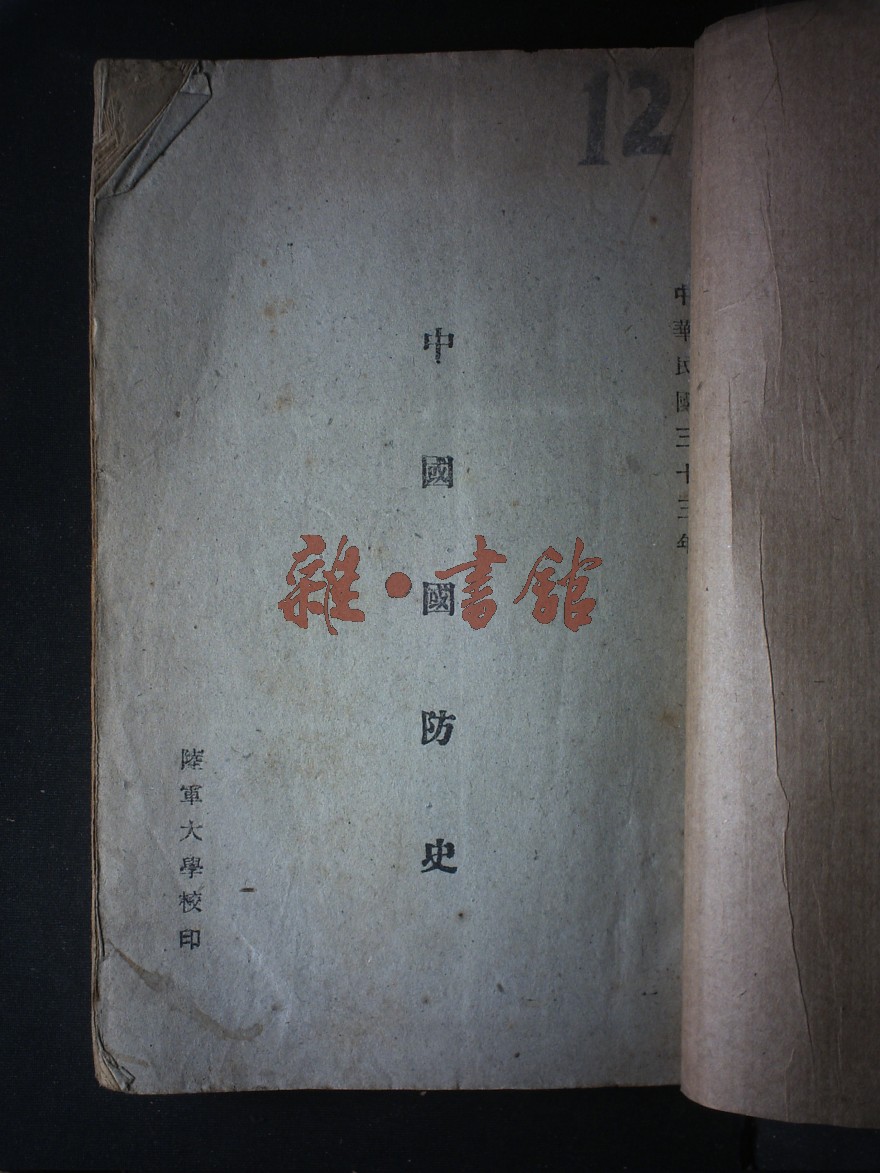 12
中華民國三十三年
中國國防史
雜·書館
陸軍大學校印